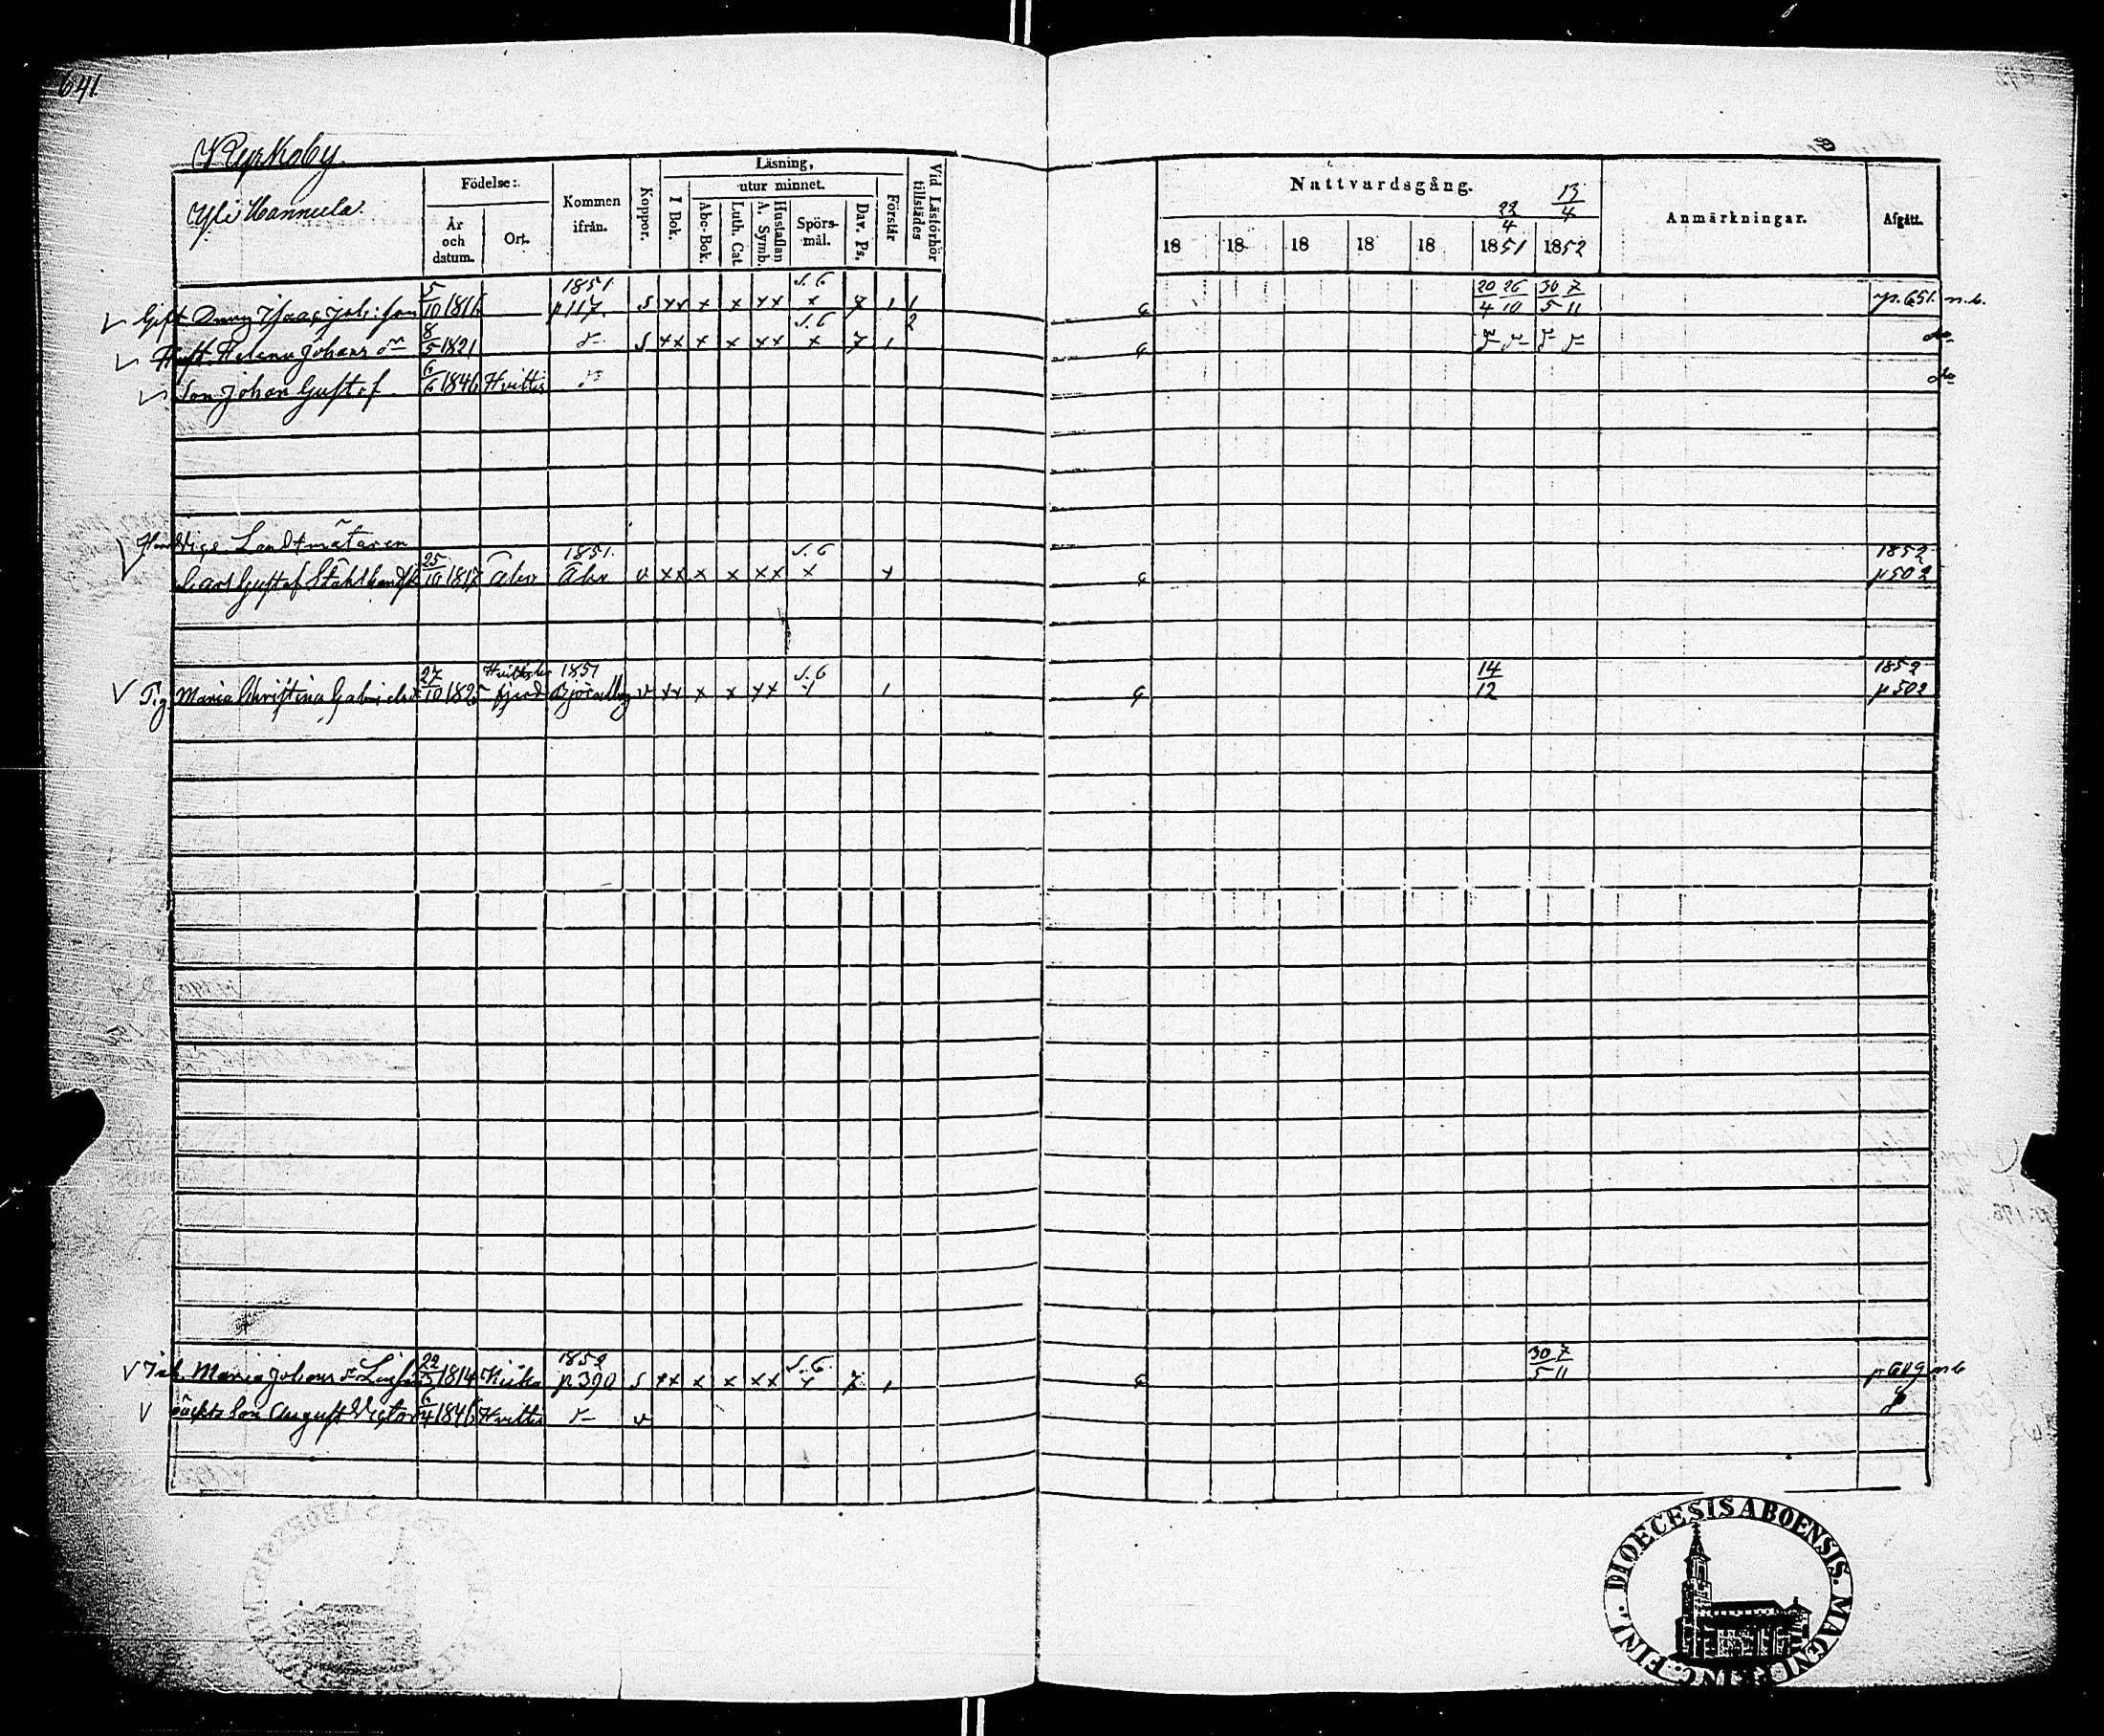 641.
Kyrkoby.
Yli Hannula.
Födelse:
År och datum.
Ort.
Kommen ifrån.
Koppor.
Läsning,
I Bok.
utur minnet.
Abc-Bok.
Luth. Cat.
Hustaflan A. Symb.
Spörsmål.
Dav. Ps.
Förstår
Vid Läsförhör tillstädes
Nattvardsgång.
22/4 13/4
18 18 18 18 18 1851 1852
Anmärkningar.
Afgått.
5 1851 s. G 20 26 30 7
Gift Dreng Isaac Joh:son 10 1816 p 117. s xx x x xx x 7 1 1 G 4 10 5 11 p. 651. n.6.
8 s. G 2
Hust. Helena Johans dr 5 1821 s xx x x xx x 7 1 G do
6
Son Johan Gustaf 6 1846 Hvittis do
Vice Landtmätaren
25 1851. s. G 1852
Carl Gustaf Stålhandsk 10 1817 Åbo Åbo v xx x x xx x x G p 502
27 1851 s. G 14 1852
Pig. Maria Christina Gabrielsd 10 1825 fjerd Björneborg v xx x x xx x 1 G 12 p 502
22 1852 s. G. 30 7
Maria Johans dr 1814 p 390 s xx x x xx x 7 1 G 5 11 p 649 n 6
6
oäkta Son August Victor 4 1846 Hvittis v
DIOECESIS ABOENSIS. MAGNI PRINC. FINL.